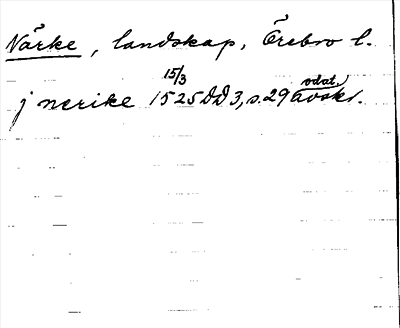 Närke, landskap, Örebro l.
j nerike 15/3 1525 DD 3, s. 29 odat. avskr.